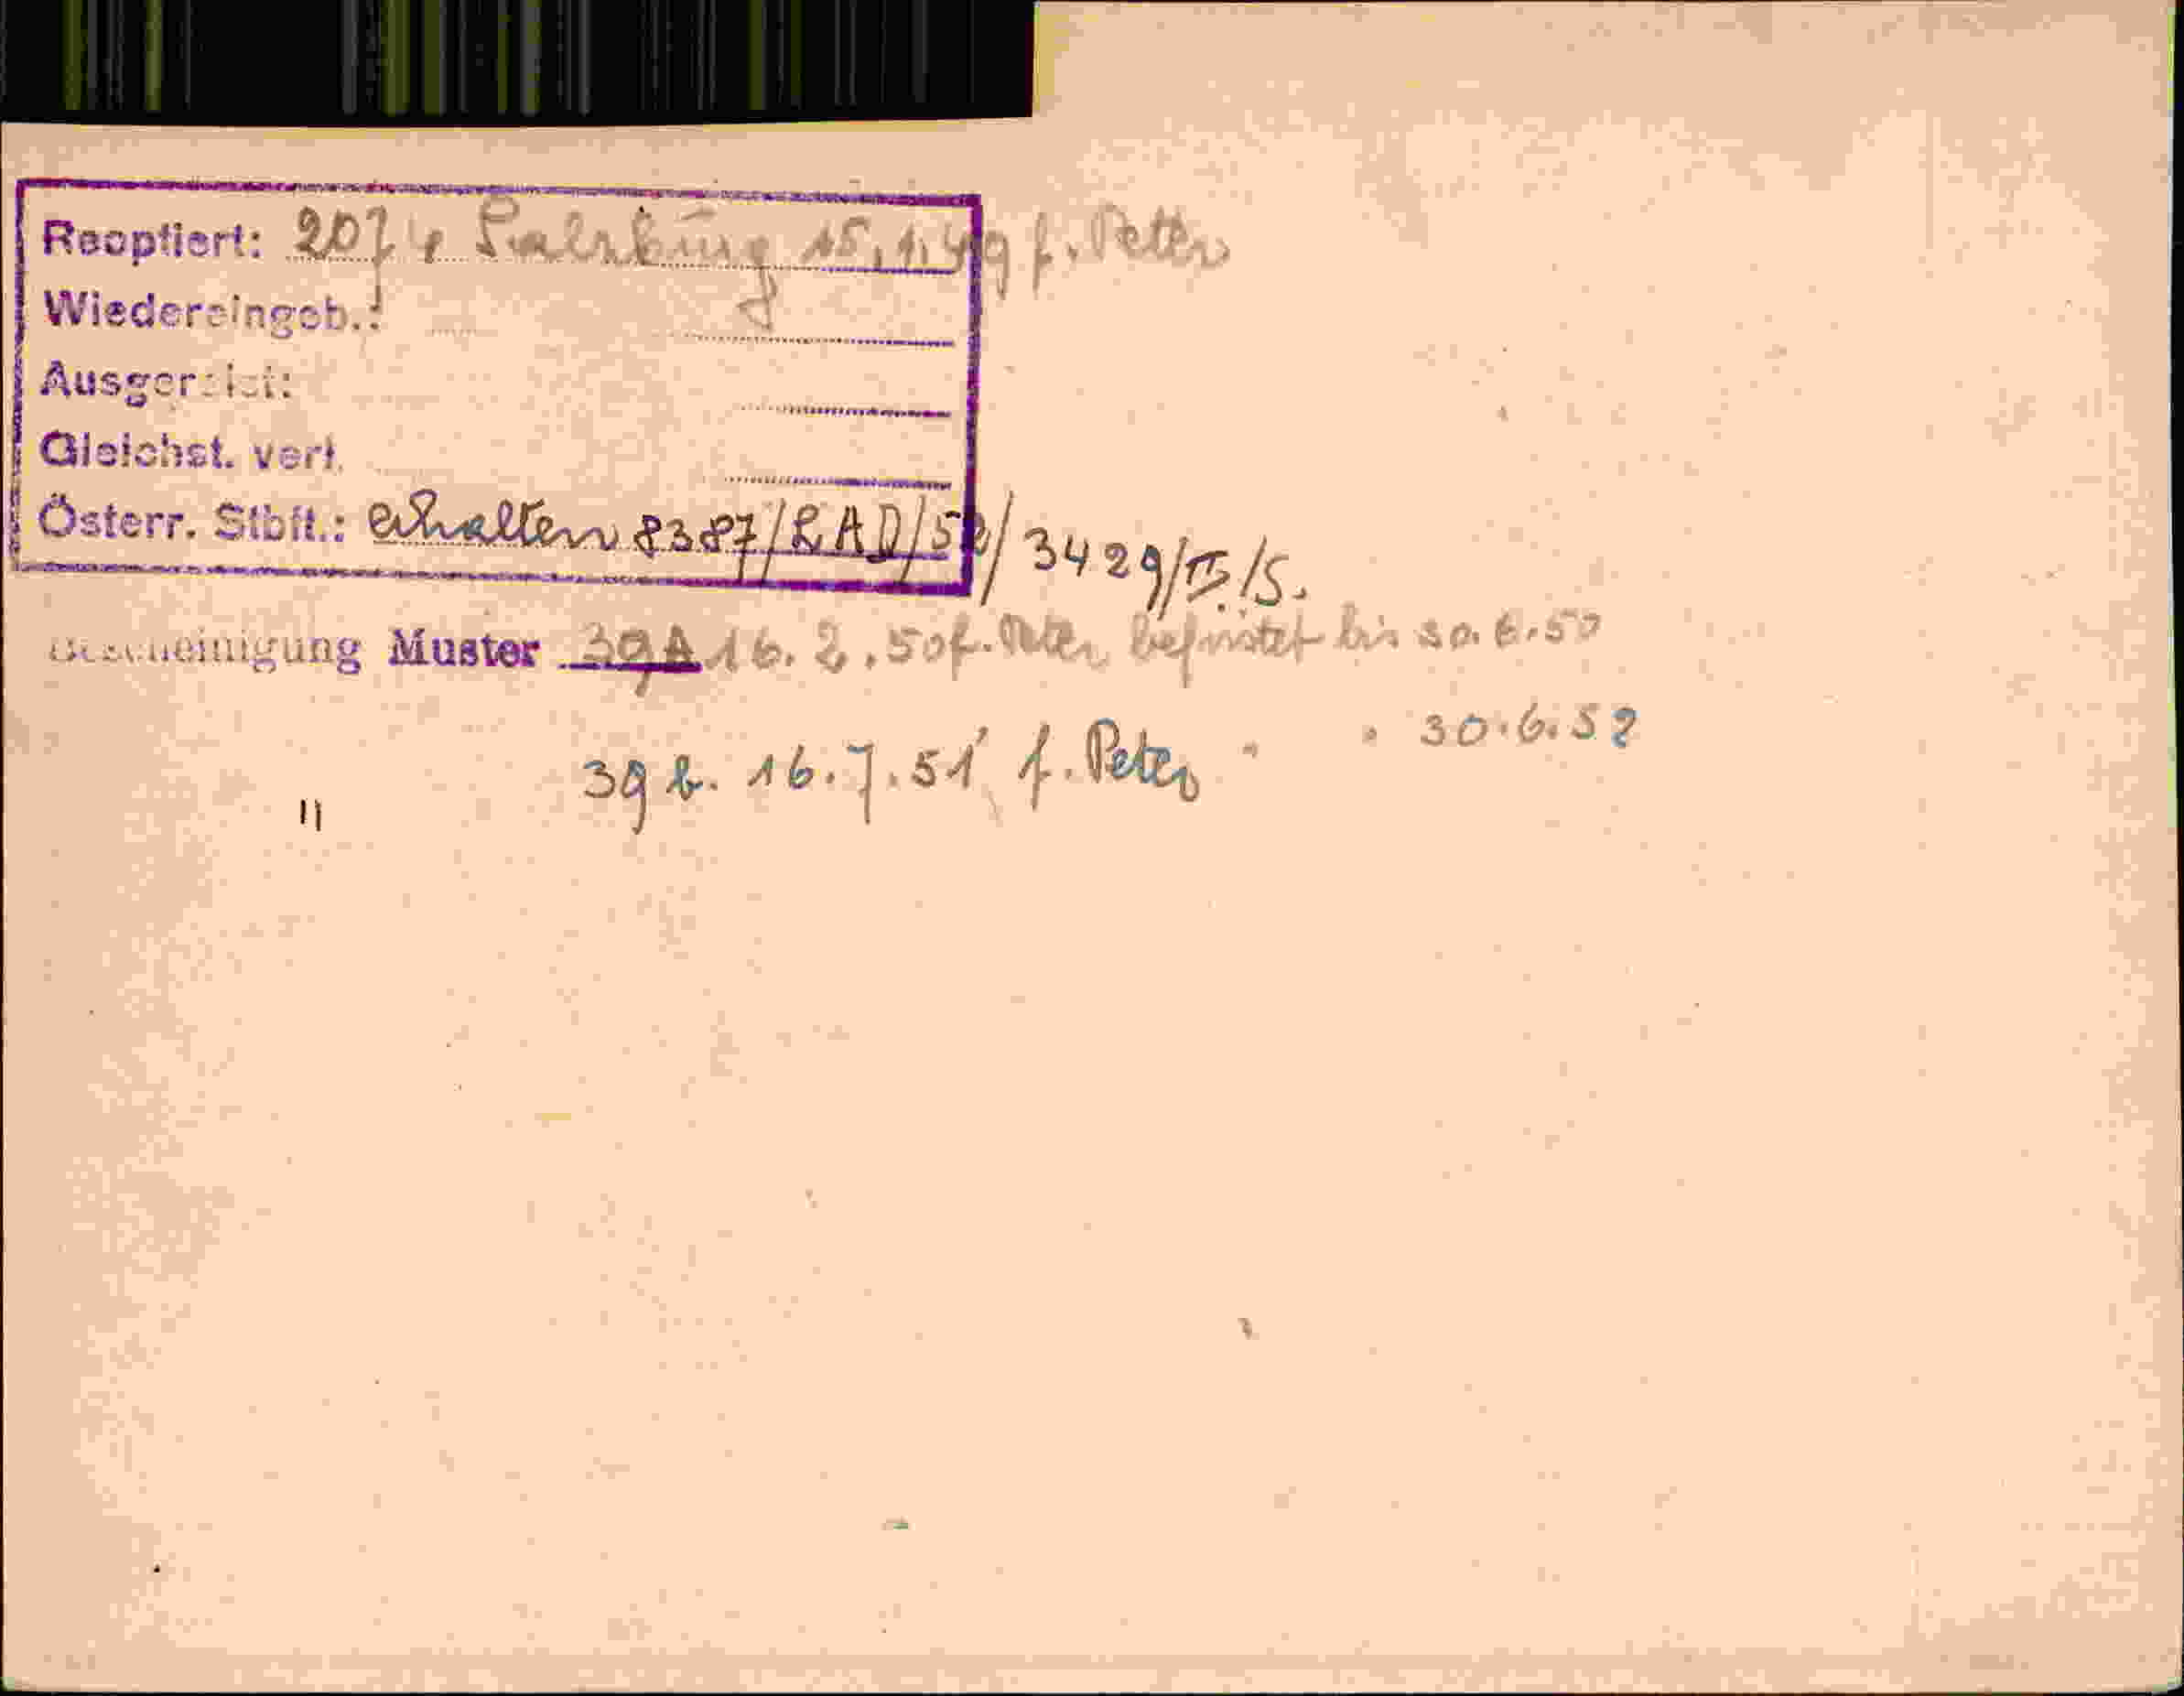 Reoptiert: 2074 Salzburg 15.1.49 f. Peter
Wiedereingeb.:
Ausgereist:
Gleichst. verl.
Österr. Stbft.: erhalten 8387/LAD/52/3429/II/S.
Bescheinigung Muster 39A 16.2.50 f. Peter befristet bis 30.6.50
" 39 b. 16.7.51 f. Peter " " 30.6.52